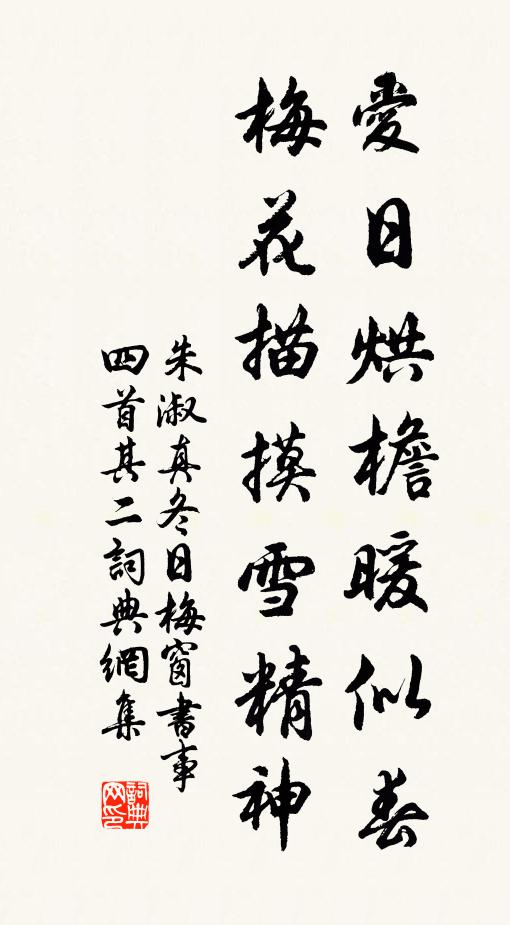 愛日烘檐暖似春
梅花描摸雪精神
朱淑真冬日梅窗書事
四首其二詞典網集
詞典
网印